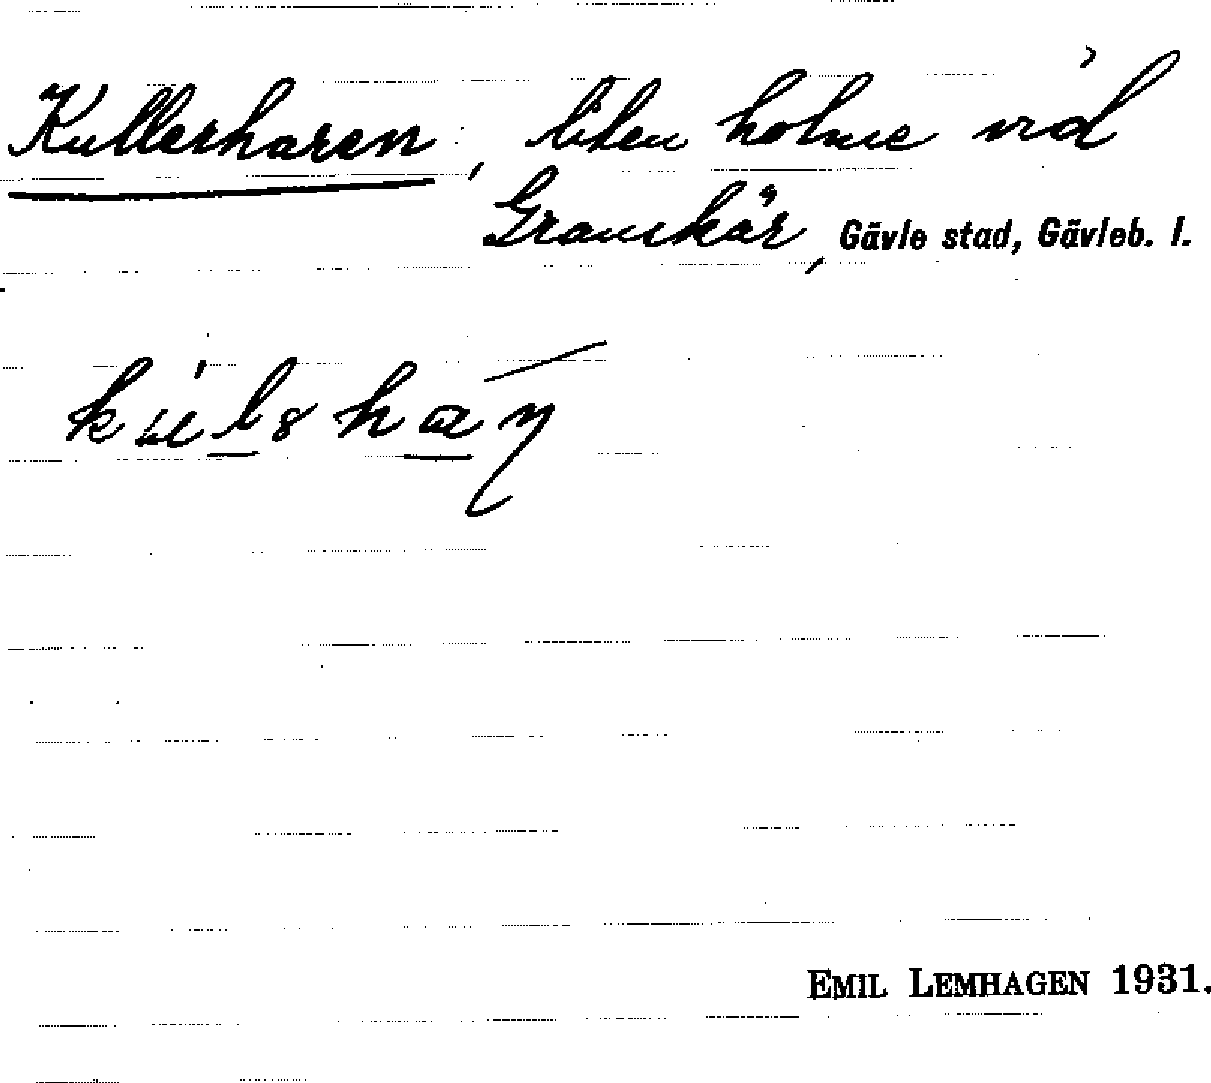 Kullerharen, liten holme vid
Granskär, Gävle stad, Gävleb. l.
EMIL LEMHAGEN 1931.